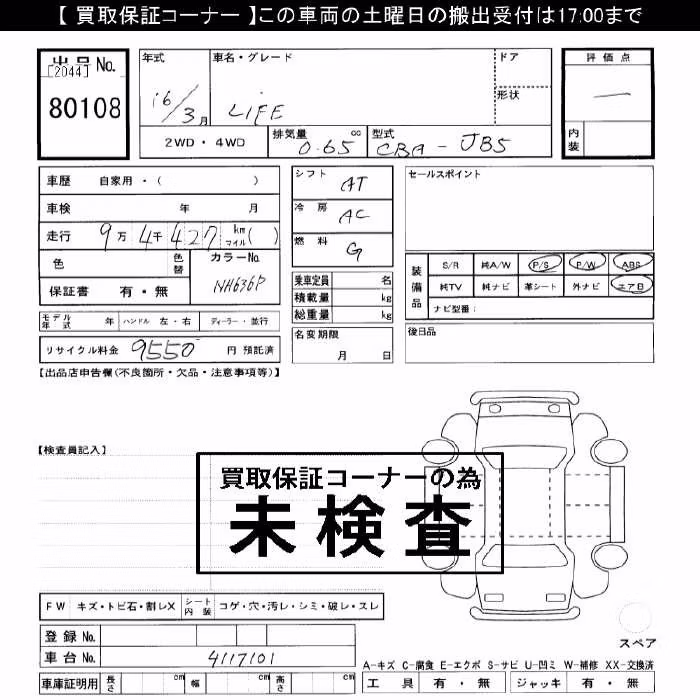 【 買取保証コーナー 】この車両の土曜日の搬出受付は17:00まで
出品No. [2044]
80108
年式 16/3月
車名・グレード LIFE
ドア
形状
評価点 —
内装
2WD・4WD
排気量 0.65 cc
型式 CBA - JB5
車歴 自家用・( )
車検 年 月
走行 9万4千427 km マイル( )
色 色替
カラーNo. NH636P
保証書 有・無
シフト AT
冷房 AC
燃料 G
乗車定員 名
積載量 kg
総重量 kg
名変期限 月 日
セールスポイント
装備品
S/R 純A/W P/S P/W ABS
純TV 純ナビ 革シート 外ナビ エアB
ナビ型番:
後日品
モデル年式 年 ハンドル 左・右 ディーラー・並行
リサイクル料金 9550 円 預託済
【出品店申告欄(不良箇所・欠品・注意事項等)】
【検査員記入】
買取保証コーナーの為
未検査
FW キズ・トビ石・割レX シート内装 コゲ・穴・汚レ・シミ・破レ・スレ
登録No.
車台No. 4117101
車庫証明用 長さ cm 幅 cm 高さ cm
スペア
A-キズ C-腐食 E-エクボ S-サビ U-凹ミ W-補修 XX-交換済
工具 有・無 ジャッキ 有・無